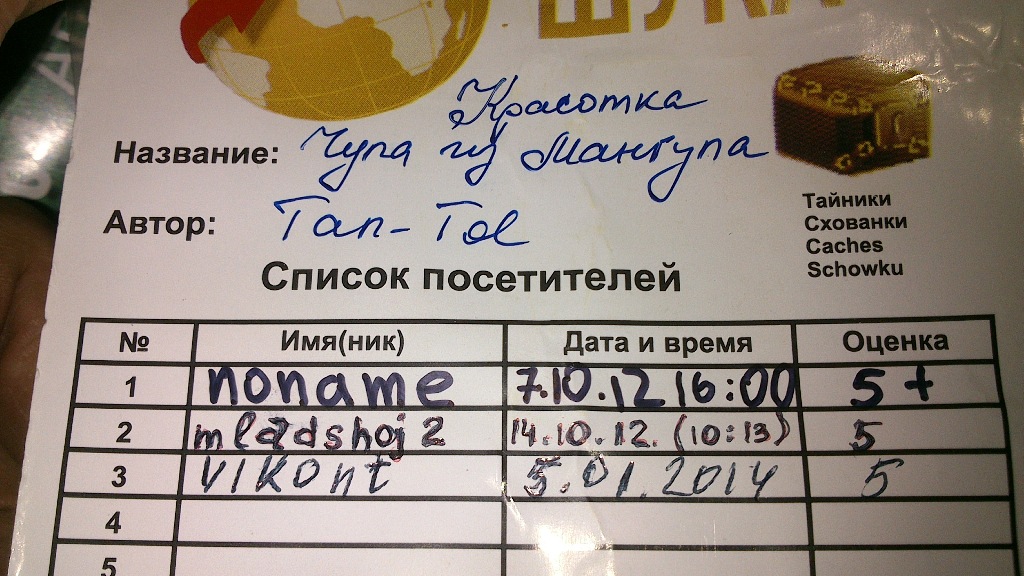 ШУКА
Красотка
Название: Чупа из Мангупа
Автор: Тап-Tol
Тайники
Схованки
Caches
Schowku
Список посетителей
№ Имя(ник) Дата и время Оценка
1 noname 7.10.12 16:00 5+
2 mladshoj2 14.10.12. (10:13) 5
3 VIKOnt 5.01.2014 5
4
5